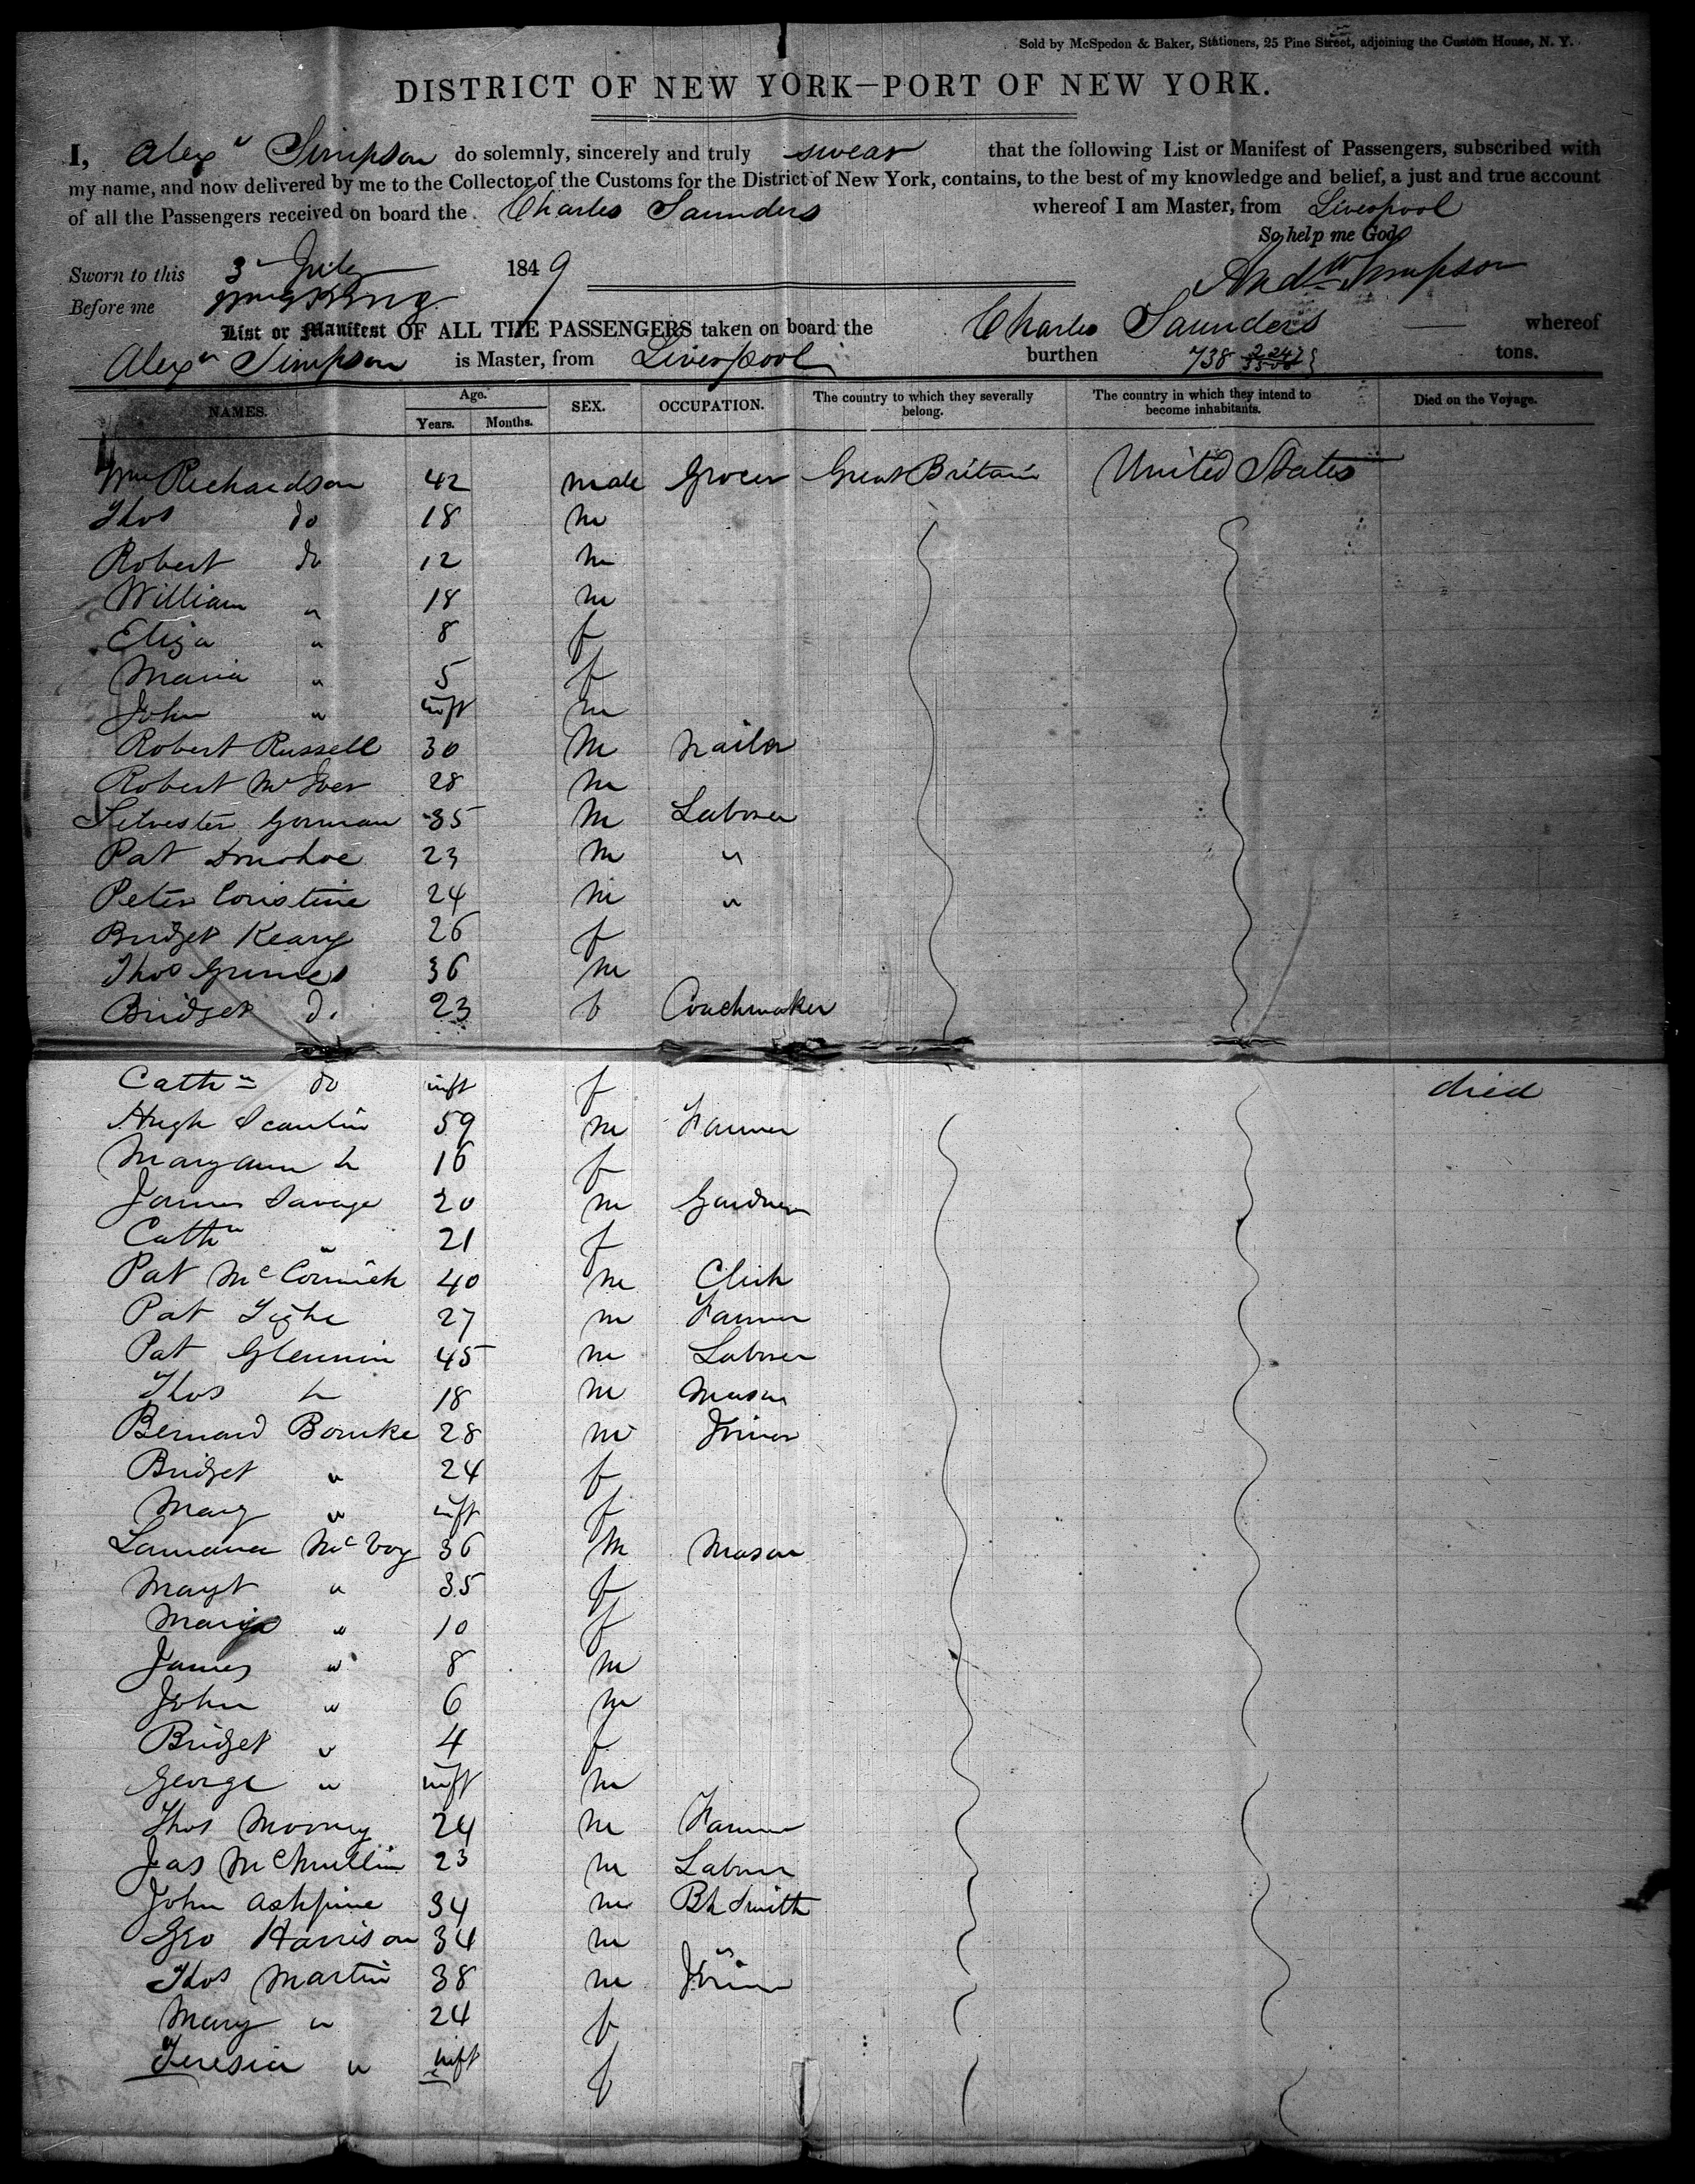 Sold by McSpedon & Baker, Stationers, 25 Pine Street, adjoining the Custom House, N. Y.
DISTRICT OF NEW YORK—PORT OF NEW YORK.
I, Alexr Simpson do solemnly, sincerely and truly swear that the following List or Manifest of Passengers, subscribed with
my name, and now delivered by me to the Collector of the Customs for the District of New York, contains, to the best of my knowledge and belief, a just and true account
of all the Passengers received on board the Charles Saunders whereof I am Master, from Liverpool
So help me God.
Sworn to this 3 July 1849 Simpson
Before me
List or Manifest OF ALL THE PASSENGERS taken on board the Charles Saunders — whereof
Alexr Simpson is Master, from Liverpool burthen 738 tons.
NAMES. Age. Years. Months. SEX. OCCUPATION. The country to which they severally belong. The country in which they intend to become inhabitants. Died on the Voyage.
Wm Richardson 42 male Grocer Great Britain United States
Thos do 18 m
Robert do 12 m
William " 18 m
Eliza " 8 f
Maria " 5 f
John " inft m
Robert Russell 30 M
Robert 28 m
Silvester Gorman 35 M Laborer
Pat Donohoe 23 m "
Peter 24 m "
Bridget Keary 26 f
Thos Grimes 36 m
Bridget do 23 f Coachmaker
Cathn do inft f died
Hugh Scanlin 59 m Farmer
Maryann " 16 f
James Savage 20 m Gardner
Cathn " 21 f
Pat McCormick 40 m Clerk
Pat Tighe 27 m Farmer
Pat Glennin 45 m Laborer
Thos " 18 m Mason
Bernard Bourke 28 m Joiner
Bridget " 24 f
Mary " inft f
McVoy 36 M Mason
Margt " 35 f
Maria " 10 f
James " 8 m
John " 6 m
Bridget " 4 f
George " inft m
Thos Mooney 24 m Farmer
Jas McMullin 23 m Laborer
John Ashpine 34 m Bk Smith
Geo Harrison 34 m "
Thos Martin 38 m Joiner
Mary " 24 f
Teresia " inft f